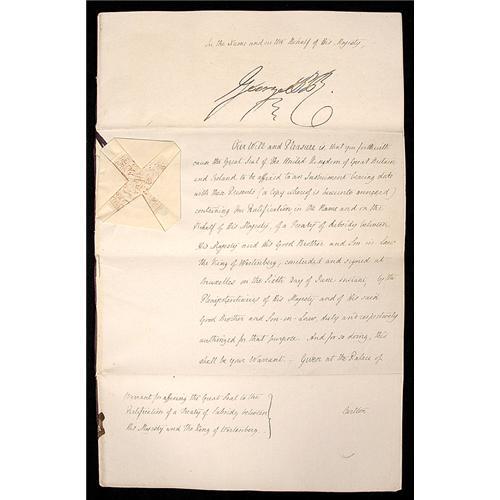 In the Name and on the Behalf of His Majesty,
George P R
Our Will and Pleasure is, that you forthwith
cause the Great Seal of the United Kingdom of Great Britain
and Ireland to be affixed to an Instrument bearing date
with these Presents (a Copy whereof is hereunto annexed)
containing Our Ratification in the Name and on the
Behalf of His Majesty, of a Treaty of Subsidy between
His Majesty and His Good Brother and Son in Law
the King of Wurtemberg, concluded and signed at
Bruxelles on the Sixth Day of June instant, by the
Plenipotentiaries of His Majesty and of His said
Good Brother and Son-in-Law, duly and respectively
authorized for that purpose. And for so doing, this
shall be your Warrant. Given at the Palace of
Warrant for affixing the Great Seal to the
Ratification of a Treaty of Subsidy between
His Majesty and The King of Wurtemberg.
Carlton